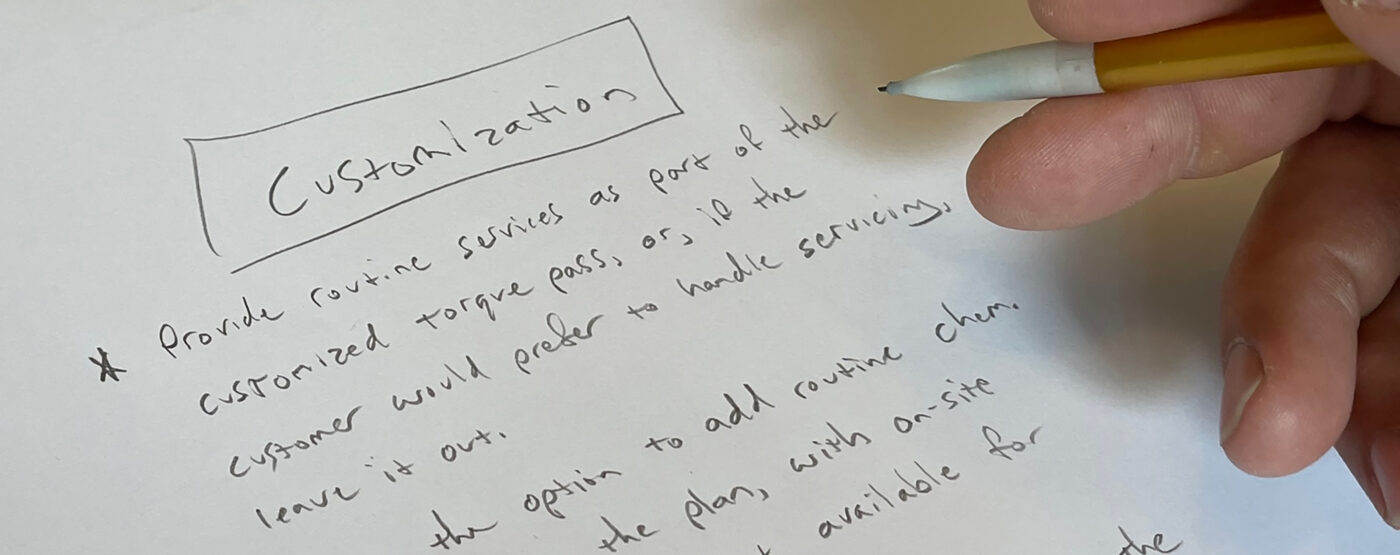 Customization
* Provide routine services as part of the
customized torque pass, or, if the
customer would prefer to handle servicing,
leave it out.
the option to add routine chem.
the plan, with on-site
available for
the